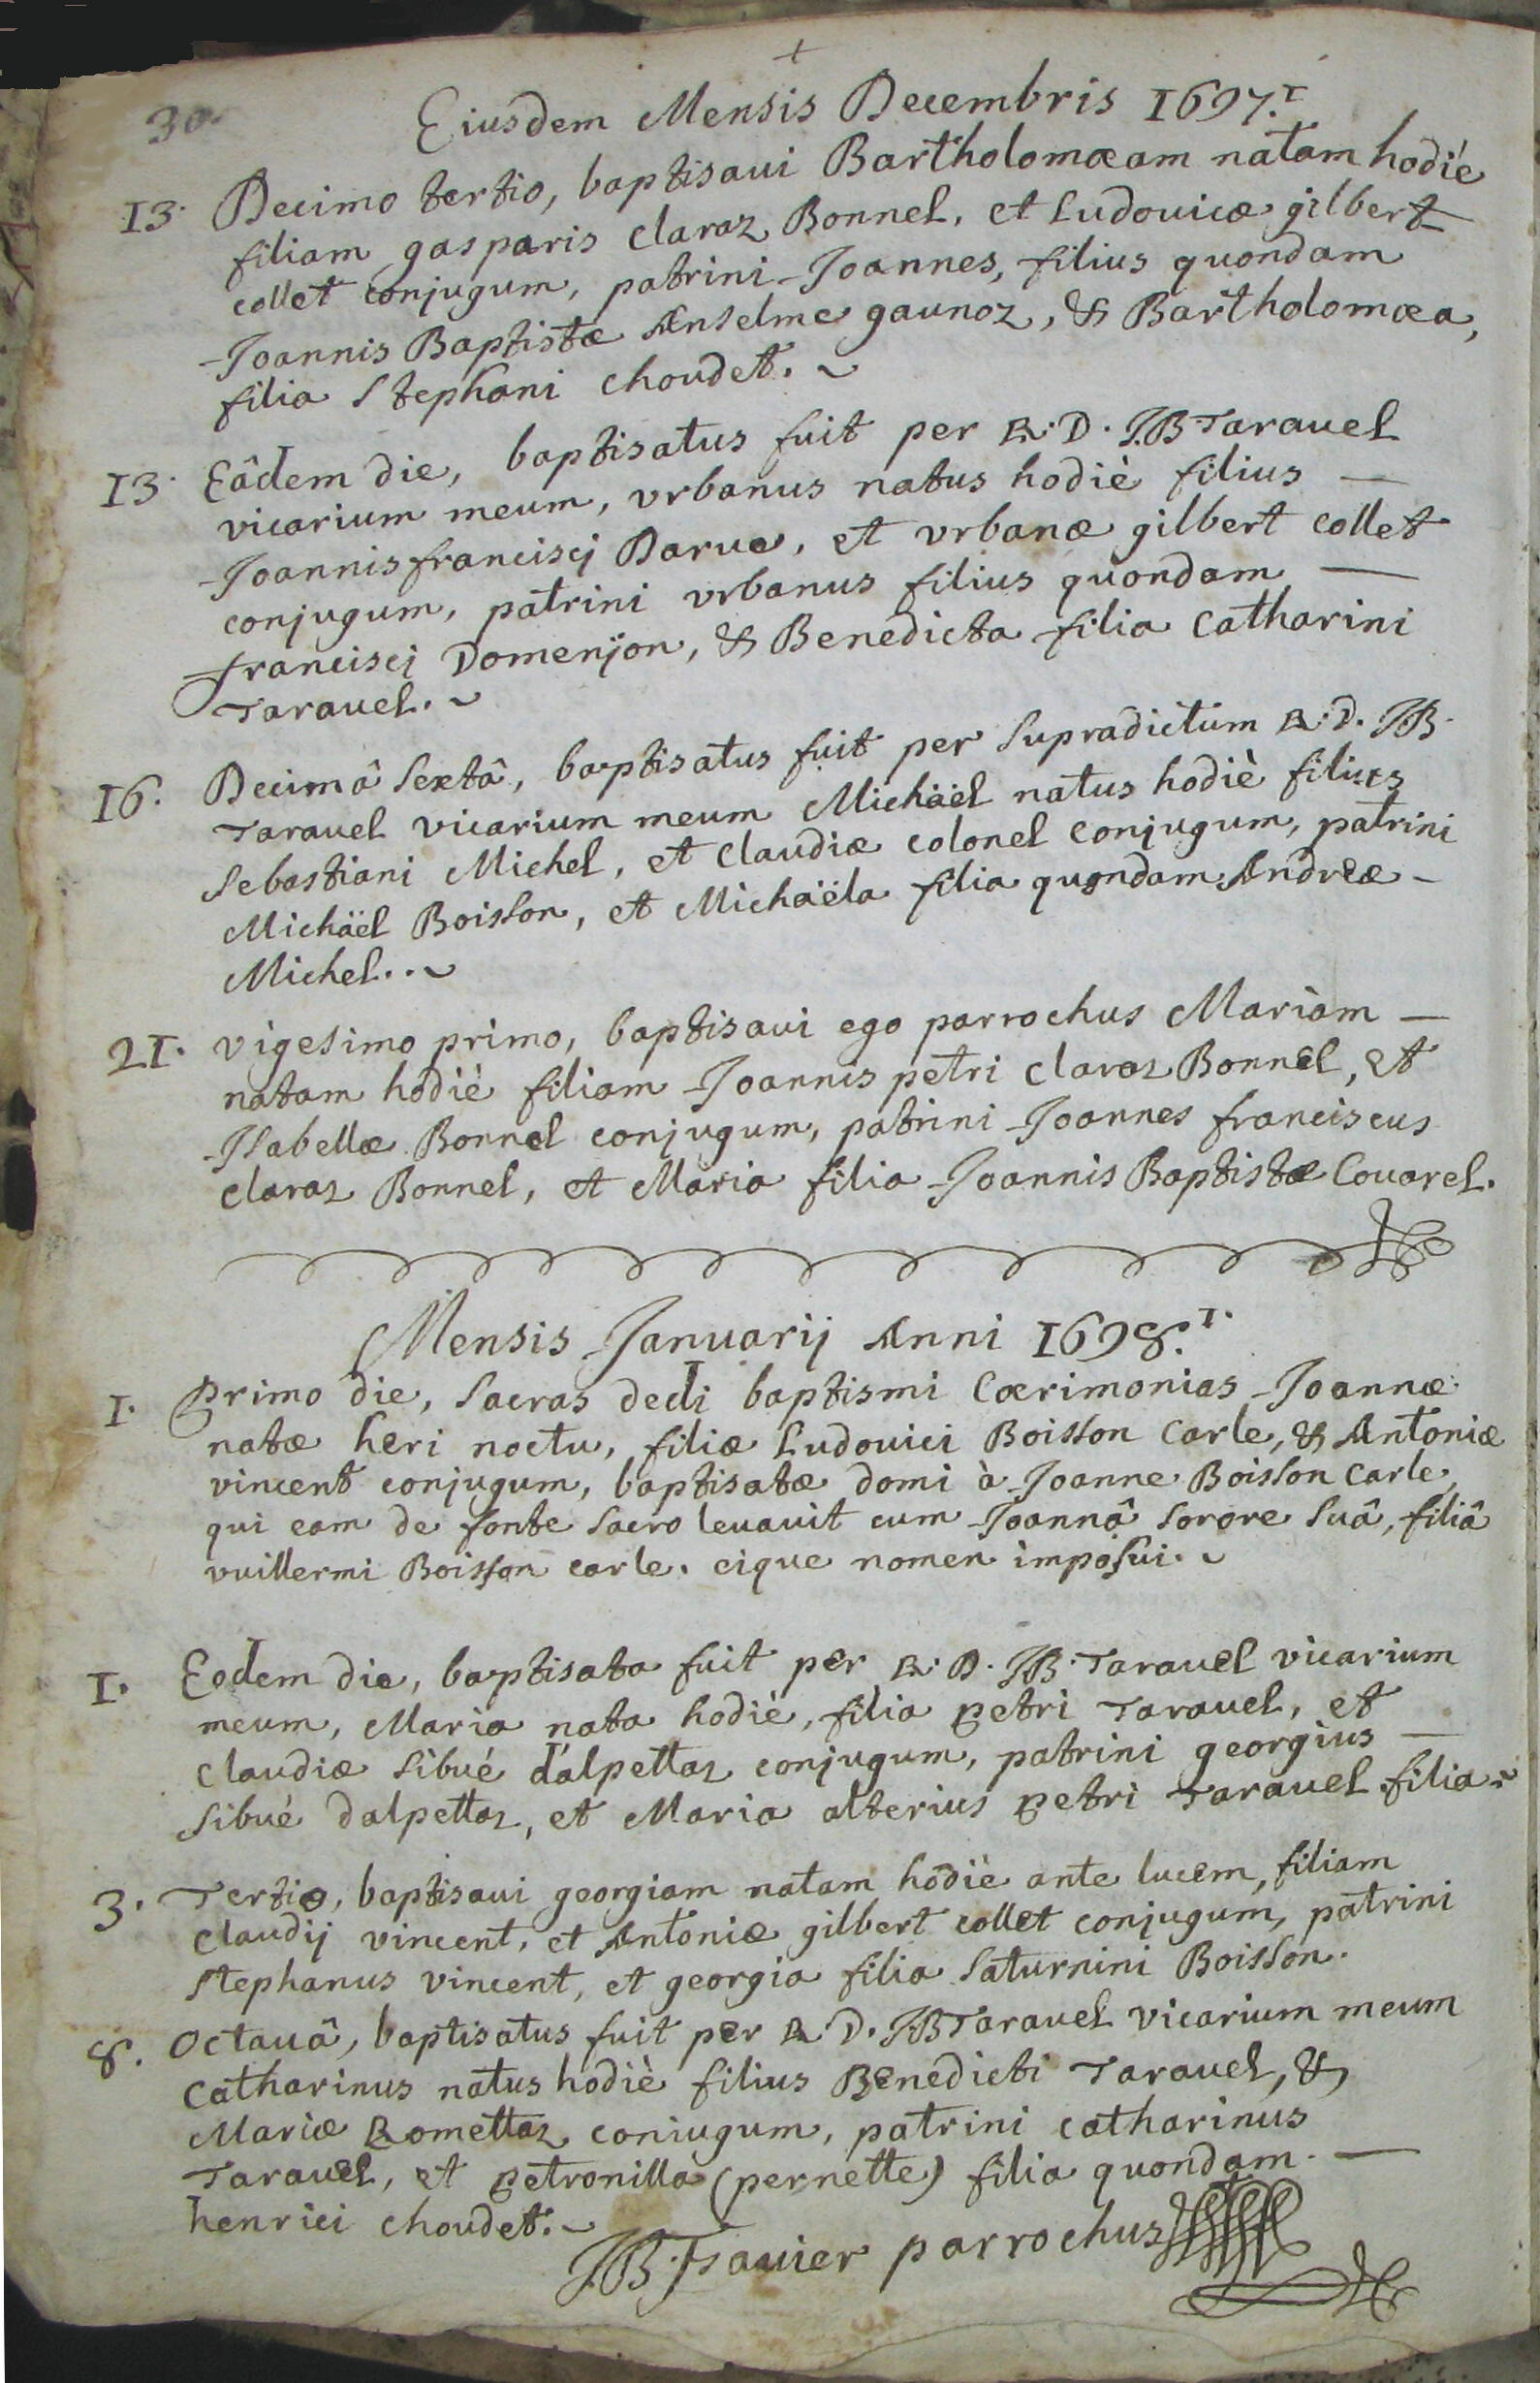 +
30.
Eiusdem Mensis Decembris 1697.
13. Decimo tertio, baptisaui Bartholomæam natam hodiè
filiam gasparis claraz Bonnel, et Ludouicæ gilbert
collet conjugum, patrini Joannes, filius quondam
Joannis Baptistæ Anselme gaunoz, & Bartholomæa,
filia Stephani choudet.
13. Eâdem die, baptisatus fuit per R.D. JB Tarauel
vicarium meum, vrbanus natus hodiè filius —
Joannis francisci Darue, et vrbanæ gilbert collet
conjugum, patrini vrbanus filius quondam —
francisci Domenjon, & Benedicta filia Catharini
Tarauel.
16. Decimâ Sextâ, baptisatus fuit per Supradictum R.D. JB.
Tarauel vicarium meum Michäël natus hodiè filius
Sebastiani Michel, et claudiæ colonel conjugum, patrini
Michäël Boisson, et Michäëla filia quondam Andreæ -
Michel..
21. vigesimo primo, baptisaui ego parrochus Mariam —
natam hodiè filiam Joannis petri claraz Bonnel, et
Isabellæ Bonnel conjugum, patrini Joannes franciscus
claraz Bonnel, et Maria filia Joannis Baptistæ Couarel.
Mensis Januarij Anni 1698.
1. Primo die, Sacras dedi baptismi Cærimonias Joannæ
natæ heri noctu, filiæ Ludouici Boisson Carle, & Antoniæ
vincent conjugum, baptisatæ domi à Joanne Boisson Carle,
qui eam de fonte Sacro leuauit cum Joannâ Sorore Suâ, filiâ
vuillermi Boisson carle. eique nomen imposui.
1. Eodem die, baptisata fuit per R.D. JB. Tarauel vicarium
meum, Maria nata hodiè, filia petri Tarauel, et
Claudiæ Sibué d'alpettaz conjugum, patrini georgius —
Sibué dalpettaz, et Maria alterius petri Tarauel filia.
3. Tertio, baptisaui georgiam natam hodiè ante lucem, filiam
Claudij vincent, et Antoniæ gilbert collet conjugum, patrini
Stephanus vincent, et georgia filia Saturnini Boisson.
8. Octauâ, baptisatus fuit per R D. JB Tarauel vicarium meum
Catharinus natus hodiè filius Benedicti Tarauel, &
Mariæ Romettaz coniugum, patrini catharinus
Tarauel, et petronilla (pernette) filia quondam. —
henrici choudet.
JB. Fauier parrochus